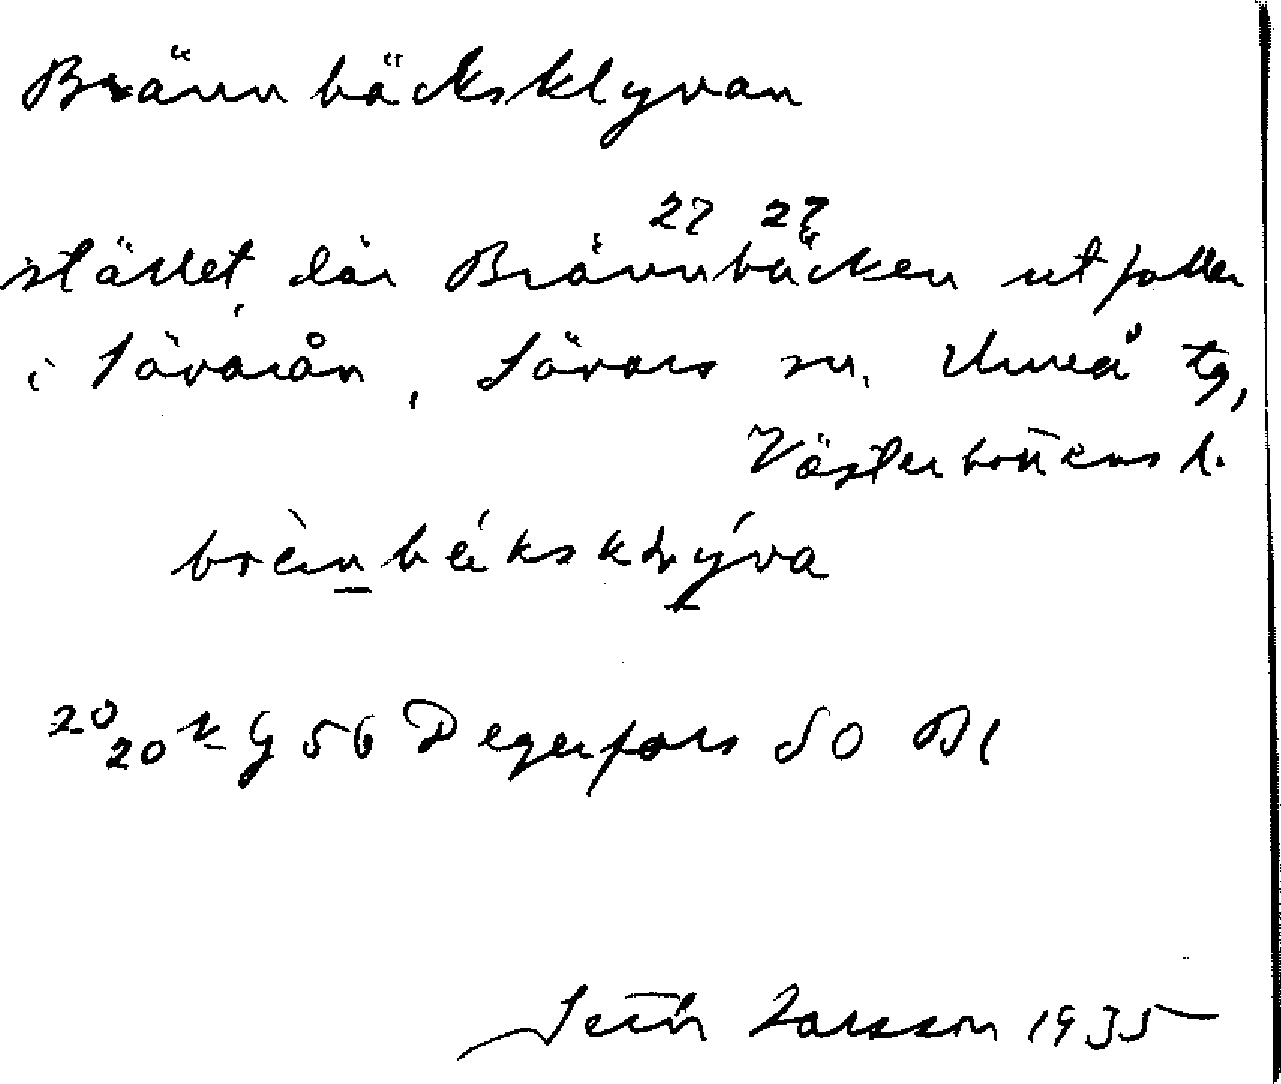 Brännbäcksklyvan
27 27
stället, där Brännbäcken utfaller
i Sävarån, Sävars sn, Umeå tg,
Västerbottens l.
20 20 k G 56 Degerfors SO Bl
Seth Larsson 1935